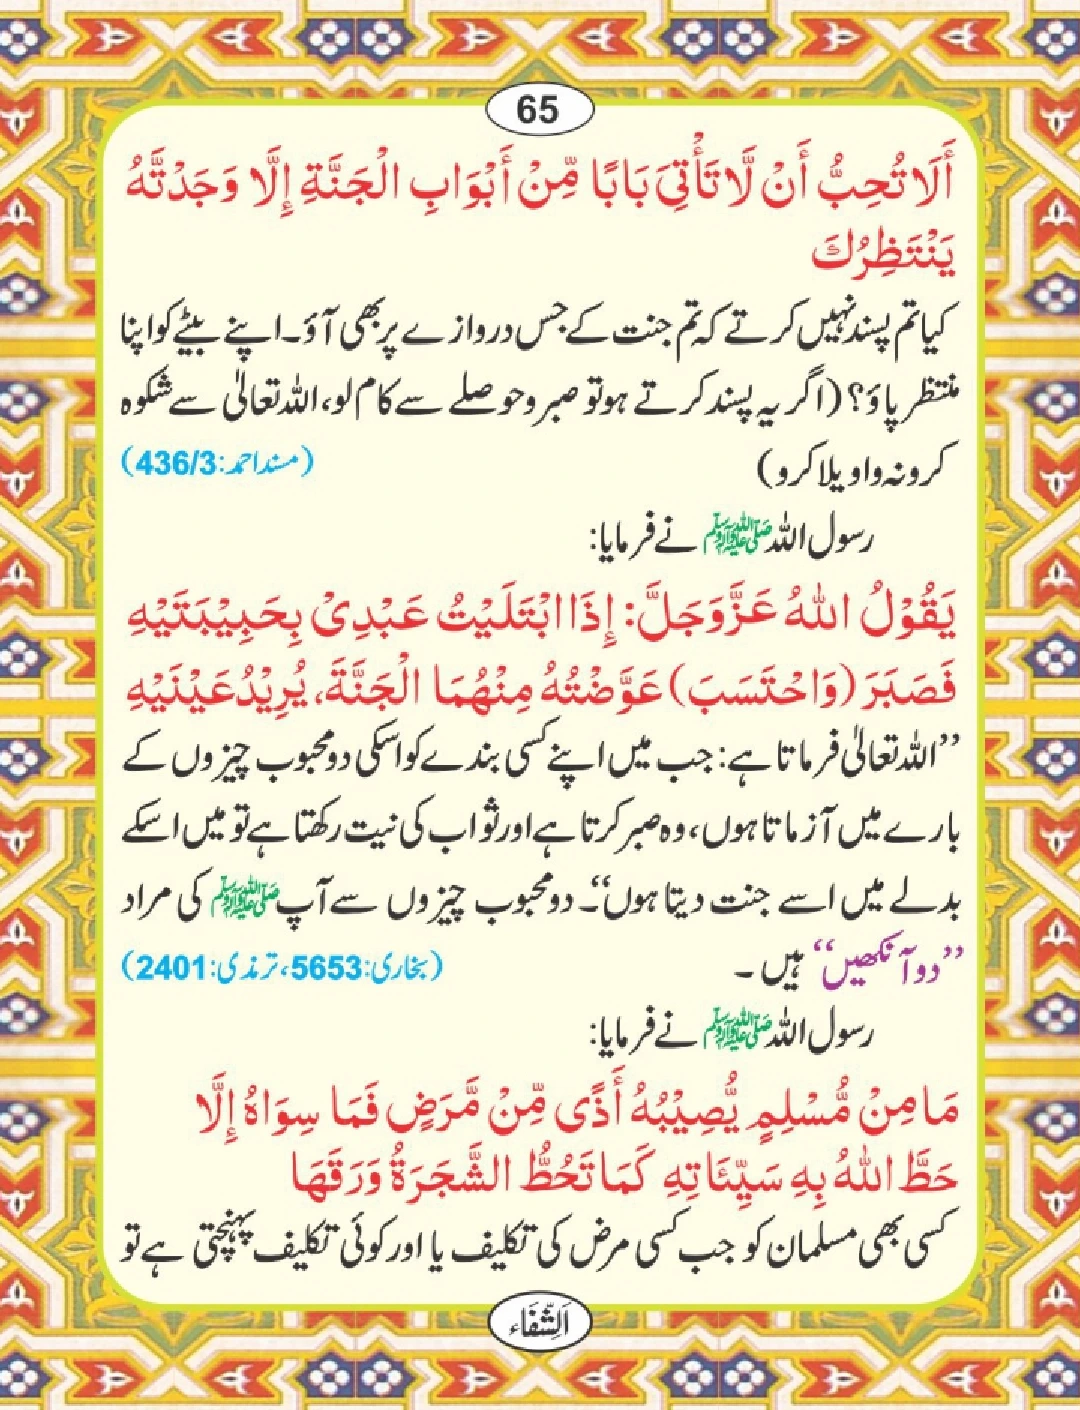 65
أَلَا تُحِبُّ أَنْ لَّا تَأْتِيَ بَابًا مِّنْ أَبْوَابِ الْجَنَّةِ إِلَّا وَجَدْتَّهُ
يَنْتَظِرُكَ
کیا تم پسند نہیں کرتے کہ تم جنت کے جس دروازے پر بھی آؤ۔ اپنے بیٹے کو اپنا
منتظر پاؤ؟ (اگر یہ پسند کرتے ہو تو صبر و حوصلے سے کام لو، اللہ تعالیٰ سے شکوہ
کرو نہ واویلا کرو) (مسند احمد: 436/3)
رسول اللہ ﷺ نے فرمایا:
يَقُوْلُ اللهُ عَزَّوَجَلَّ: إِذَا ابْتَلَيْتُ عَبْدِيْ بِحَبِيْبَتَيْهِ
فَصَبَرَ (وَاحْتَسَبَ) عَوَّضْتُهُ مِنْهُمَا الْجَنَّةَ، يُرِيْدُ عَيْنَيْهِ
’’اللہ تعالیٰ فرماتا ہے: جب میں اپنے کسی بندے کو اسکی دو محبوب چیزوں کے
بارے میں آزماتا ہوں، وہ صبر کرتا ہے اور ثواب کی نیت رکھتا ہے تو میں اسکے
بدلے میں اسے جنت دیتا ہوں‘‘۔ دو محبوب چیزوں سے آپ ﷺ کی مراد
’’دو آنکھیں‘‘ ہیں۔ (بخاری: 5653، ترمذی: 2401)
رسول اللہ ﷺ نے فرمایا:
مَا مِنْ مُّسْلِمٍ يُّصِيْبُهُ أَذًى مِّنْ مَّرَضٍ فَمَا سِوَاهُ إِلَّا
حَطَّ اللهُ بِهِ سَيِّئَاتِهِ كَمَا تَحُطُّ الشَّجَرَةُ وَرَقَهَا
کسی بھی مسلمان کو جب کسی مرض کی تکلیف یا اور کوئی تکلیف پہنچتی ہے تو
اَلشِّفَاء